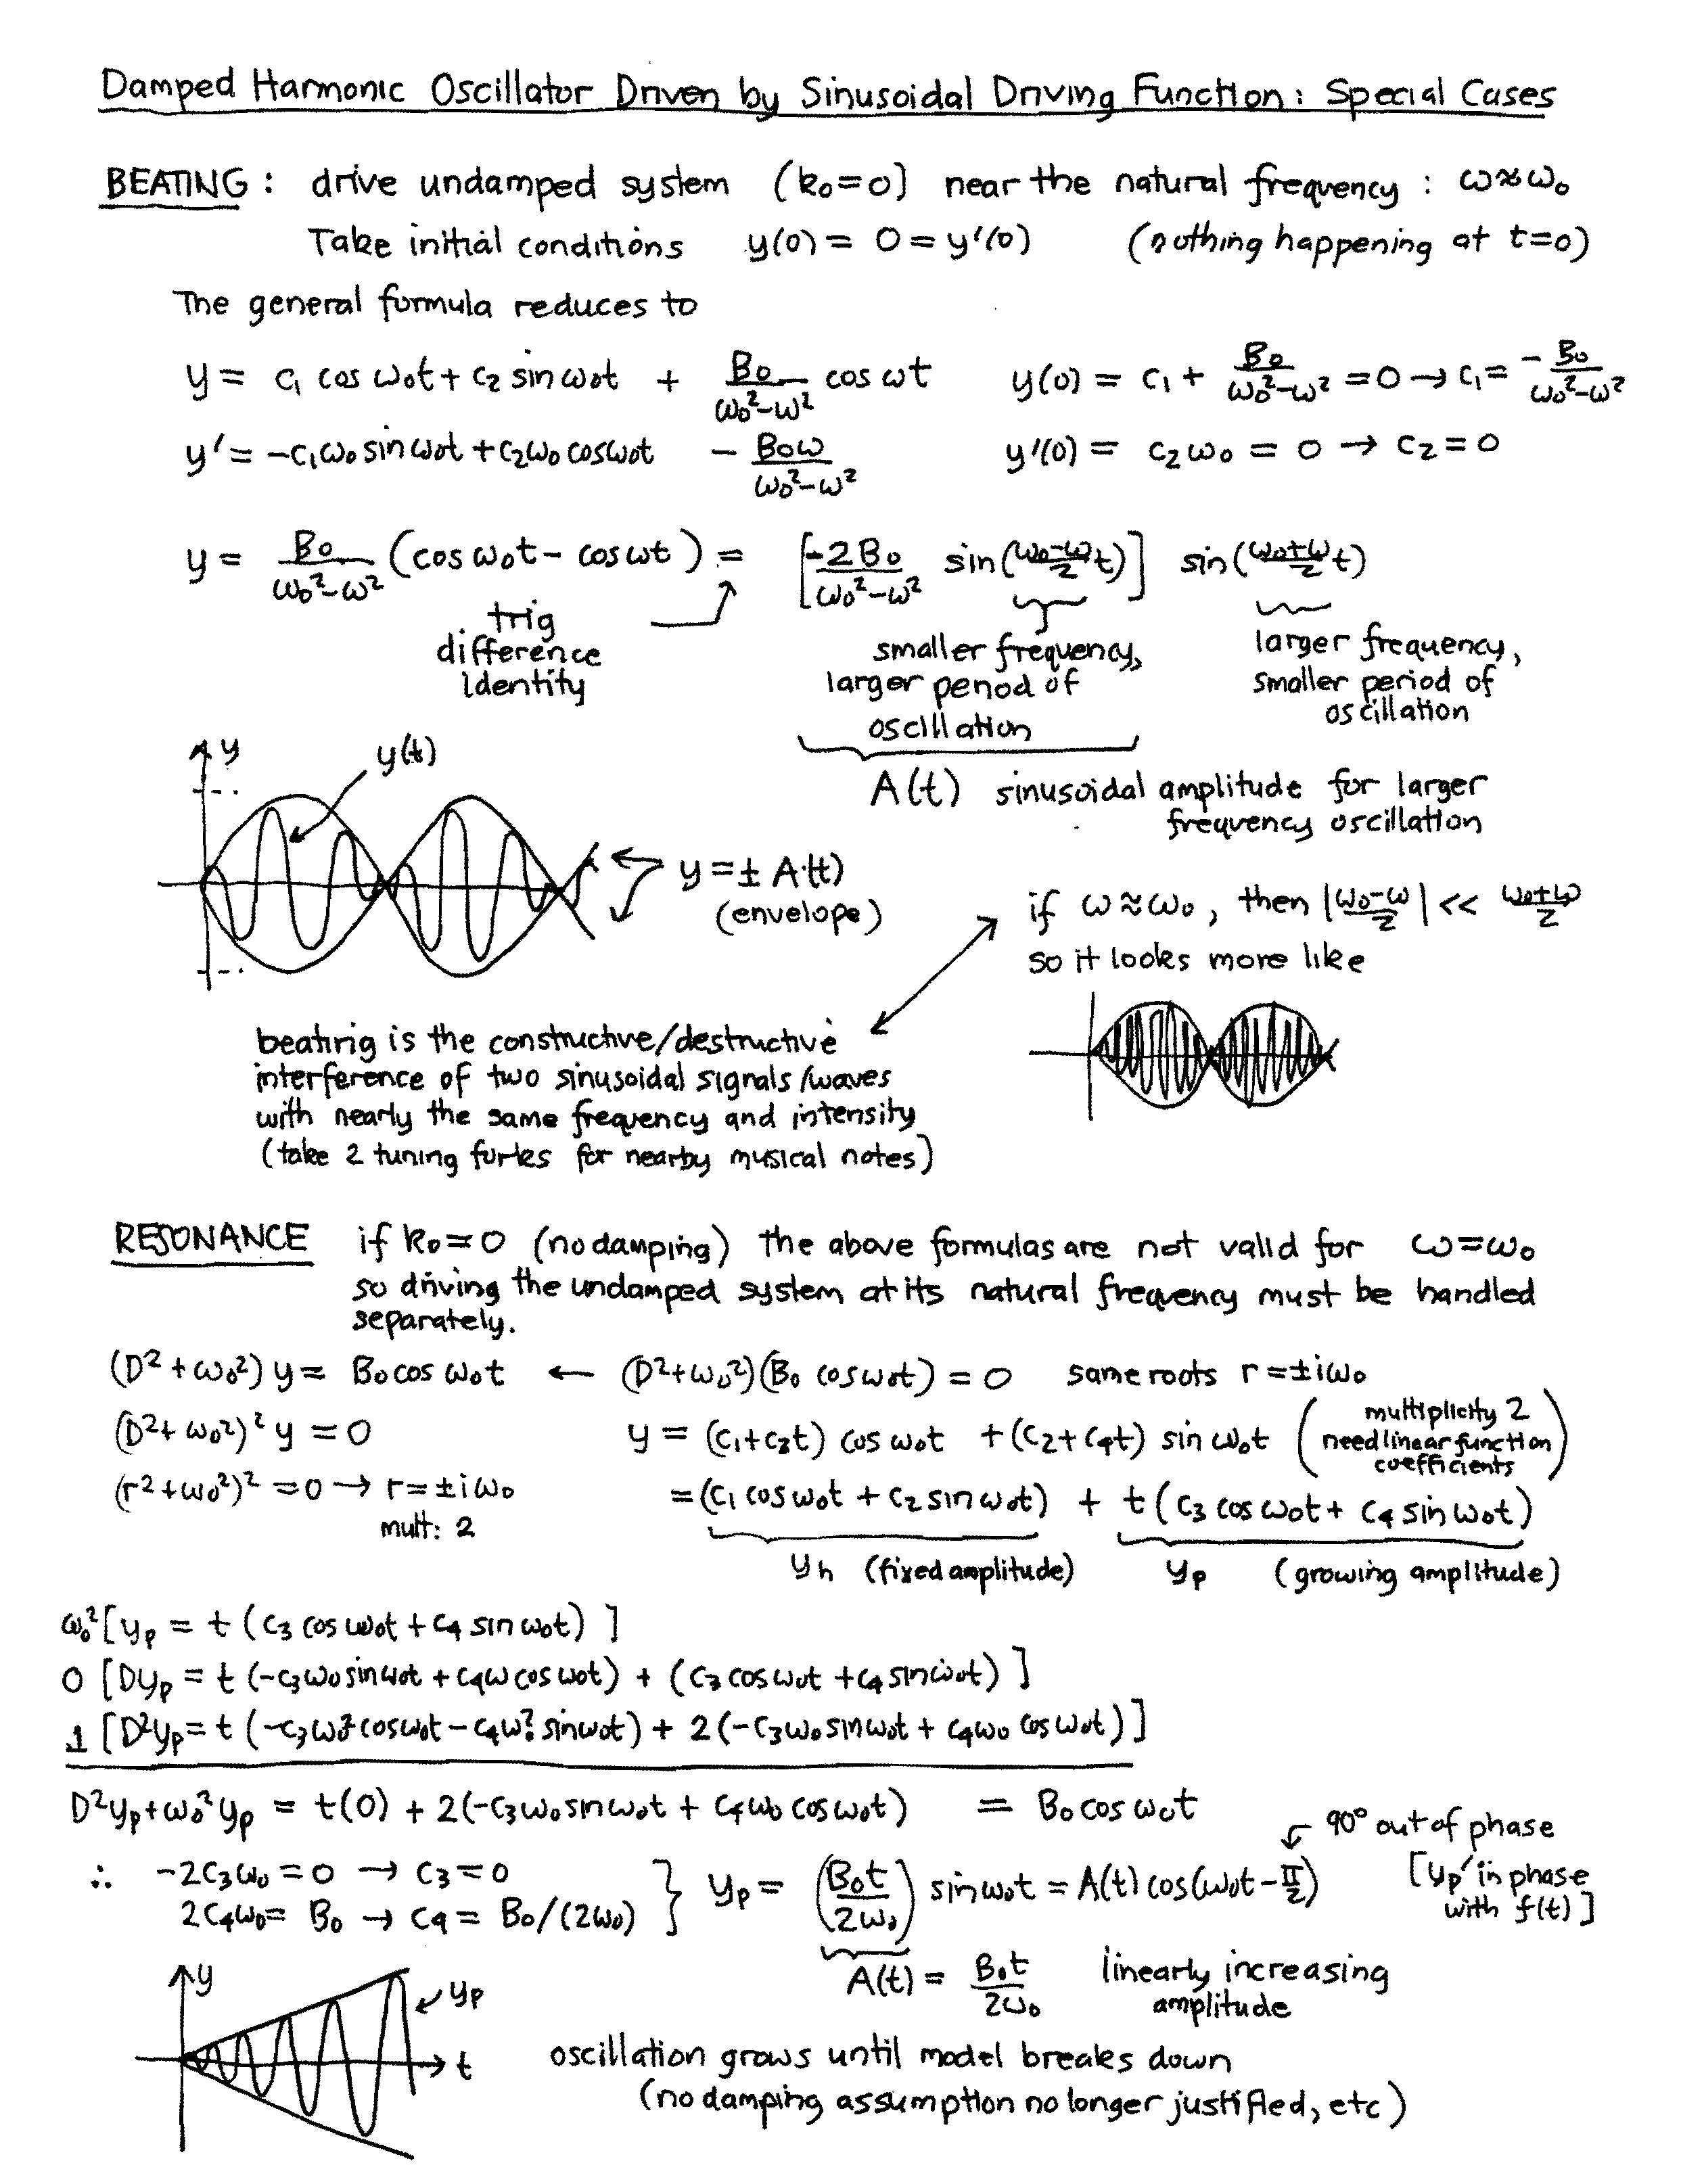 Damped Harmonic Oscillator Driven by Sinusoidal Driving Function: Special Cases
BEATING: drive undamped system (k₀=0) near the natural frequency: ω≈ω₀
Take initial conditions y(0) = 0 = y'(0) (nothing happening at t=0)
The general formula reduces to
y = c₁ cos ω₀t + c₂ sin ω₀t + B₀/(ω₀²-ω²) cos ωt y(0) = c₁ + B₀/(ω₀²-ω²) = 0 → c₁ = -B₀/(ω₀²-ω²)
y' = -c₁ω₀ sin ω₀t + c₂ω₀ cos ω₀t - B₀ω/(ω₀²-ω²) y'(0) = c₂ω₀ = 0 → c₂ = 0
y = B₀/(ω₀²-ω²) (cos ω₀t - cos ωt) = [-2B₀/(ω₀²-ω²) sin((ω₀-ω)/2 t)] sin((ω₀+ω)/2 t)
trig
difference
identity
smaller frequency,
larger period of
oscillation
larger frequency,
smaller period of
oscillation
A(t) sinusoidal amplitude for larger
frequency oscillation
y
y(t)
y = ± A(t)
(envelope)
if ω≈ω₀, then |(ω₀-ω)/2| << (ω₀+ω)/2
so it looks more like
beating is the constructive/destructive
interference of two sinusoidal signals/waves
with nearly the same frequency and intensity
(take 2 tuning forks for nearby musical notes)
RESONANCE if k₀=0 (no damping) the above formulas are not valid for ω=ω₀
so driving the undamped system at its natural frequency must be handled
separately.
(D²+ω₀²) y = B₀ cos ω₀t ← (D²+ω₀²)(B₀ cos ω₀t) = 0 same roots r = ±iω₀
(D²+ω₀²)² y = 0 y = (c₁+c₃t) cos ω₀t + (c₂+c₄t) sin ω₀t (multiplicity 2
need linear function
coefficients)
(r²+ω₀²)² = 0 → r = ±iω₀ = (c₁ cos ω₀t + c₂ sin ω₀t) + t (c₃ cos ω₀t + c₄ sin ω₀t)
mult: 2
yₕ (fixed amplitude) yₚ (growing amplitude)
ω₀² [yₚ = t (c₃ cos ω₀t + c₄ sin ω₀t) ]
0 [Dyₚ = t (-c₃ω₀ sin ω₀t + c₄ω cos ω₀t) + (c₃ cos ω₀t + c₄ sin ω₀t) ]
1 [D²yₚ = t (-c₃ω₀² cos ω₀t - c₄ω₀² sin ω₀t) + 2(-c₃ω₀ sin ω₀t + c₄ω₀ cos ω₀t) ]
D²yₚ + ω₀²yₚ = t(0) + 2(-c₃ω₀ sin ω₀t + c₄ω₀ cos ω₀t) = B₀ cos ω₀t
90° out of phase
[yₚ' in phase
with f(t)]
∴ -2c₃ω₀ = 0 → c₃ = 0
2c₄ω₀ = B₀ → c₄ = B₀/(2ω₀)
} yₚ = (B₀t/2ω₀) sin ω₀t = A(t) cos(ω₀t - π/2)
A(t) = B₀t/2ω₀ linearly increasing
amplitude
y
yₚ
t
oscillation grows until model breaks down
(no damping assumption no longer justified, etc)